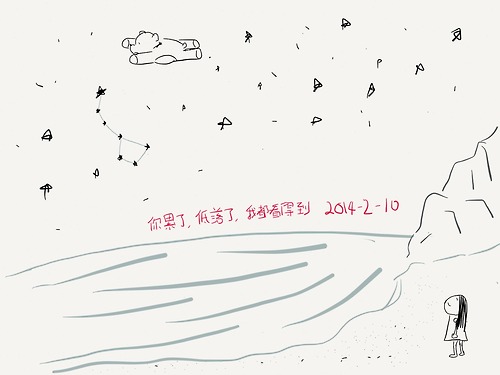 你累了,低落了,我都看得到 2014-2-10